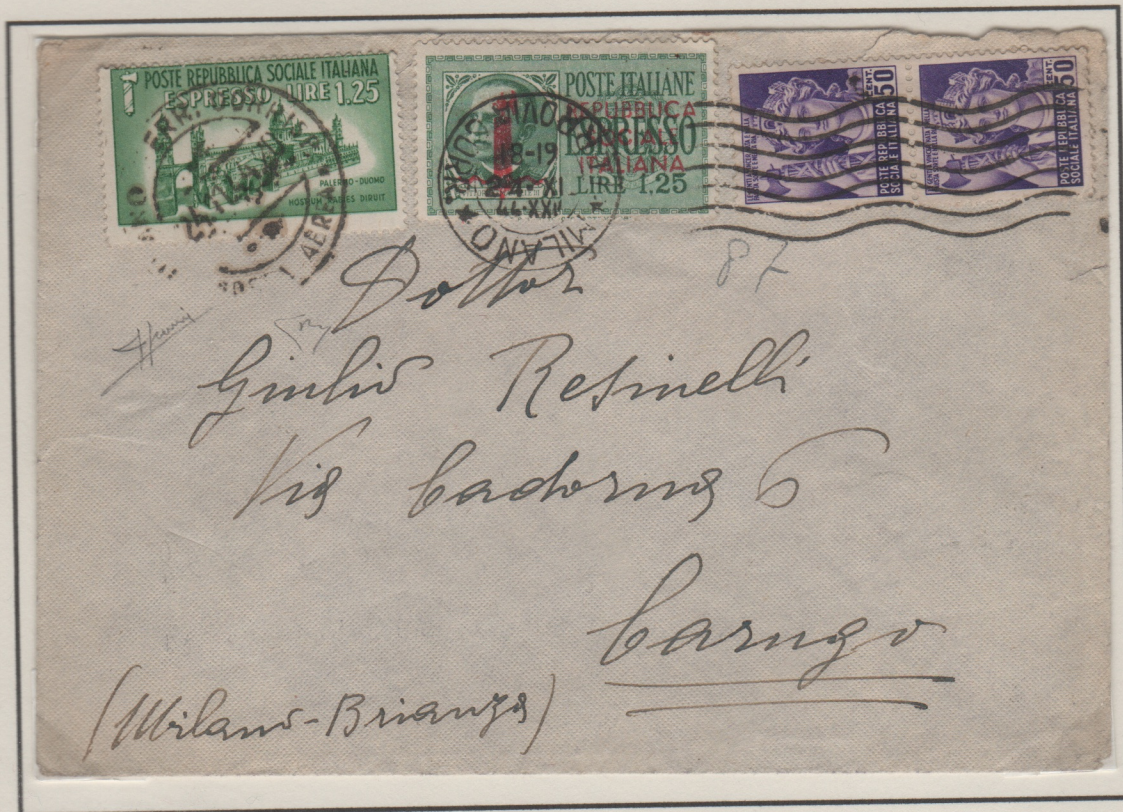 POSTE REPUBBLICA SOCIALE ITALIANA
ESPRESSO LIRE 1.25
PALERMO-DUOMO
HOSTIUM RABIES DIRUIT
POSTE ITALIANE
ESPRESSO
LIRE 1.25
REPUBBLICA
SOCIALE
ITALIANA
MILANO
18-19
44-XXII
CENT. 50
POSTE REPUBBLICA
SOCIALE ITALIANA
CENT. 50
POSTE REPUBBLICA
SOCIALE ITALIANA
87
Dottor
Giulio Resinelli
Via Cadorna 6
Carugo
(Milano-Brianza)